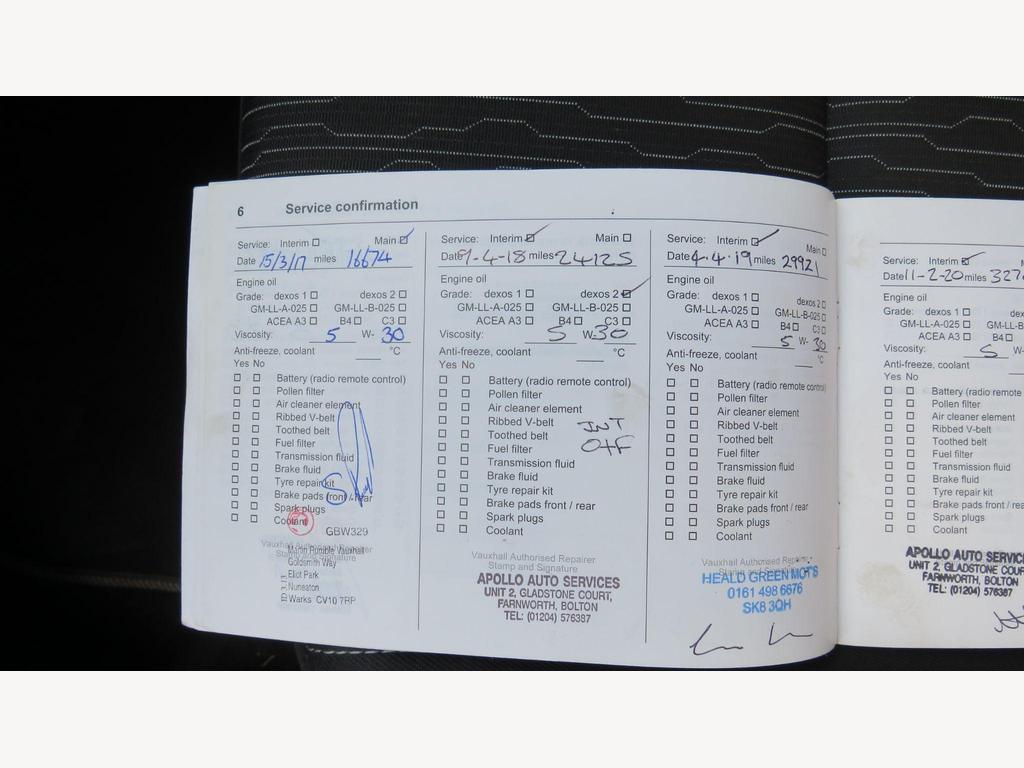 6 Service confirmation
Service: Interim Main
Date 15/3/17 miles 16674
Engine oil
Grade: dexos 1 dexos 2
GM-LL-A-025 GM-LL-B-025
ACEA A3 B4 C3
Viscosity: 5 W- 30
Anti-freeze, coolant °C
Yes No
Battery (radio remote control)
Pollen filter
Air cleaner element
Ribbed V-belt
Toothed belt
Fuel filter
Transmission fluid
Brake fluid
Tyre repair kit
Brake pads front / rear
Spark plugs
Coolant
GBW329
Vauxhall Authorised Repairer
Stamp and Signature
Martin Rumble Vauxhall
Goldsmith Way
Eliot Park
Nuneaton
Warks CV10 7RP
Service: Interim Main
Date -4-18 miles 24125
Engine oil
Grade: dexos 1 dexos 2
GM-LL-A-025 GM-LL-B-025
ACEA A3 B4 C3
Viscosity: 5 W-30
Anti-freeze, coolant °C
Yes No
Battery (radio remote control)
Pollen filter
Air cleaner element
Ribbed V-belt INT
Toothed belt
Fuel filter O+F
Transmission fluid
Brake fluid
Tyre repair kit
Brake pads front / rear
Spark plugs
Coolant
Vauxhall Authorised Repairer
Stamp and Signature
APOLLO AUTO SERVICES
UNIT 2, GLADSTONE COURT,
FARNWORTH, BOLTON
TEL: (01204) 576387
Service: Interim Main
Date 4.4.19 miles 29921
Engine oil
Grade: dexos 1 dexos 2
GM-LL-A-025 GM-LL-B-025
ACEA A3 B4 C3
Viscosity: 5 W- 30
Anti-freeze, coolant °C
Yes No
Battery (radio remote control)
Pollen filter
Air cleaner element
Ribbed V-belt
Toothed belt
Fuel filter
Transmission fluid
Brake fluid
Tyre repair kit
Brake pads front / rear
Spark plugs
Coolant
Vauxhall Authorised Repairer
Stamp and Signature
HEALD GREEN MOTS
0161 498 6676
SK8 3QH
Service: Interim
Date 11-2-20 miles 327
Engine oil
Grade: dexos 1
GM-LL-A-025 GM-LL-B
ACEA A3 B4
Viscosity: 5 W-
Anti-freeze, coolant
Yes No
Battery (radio remote
Pollen filter
Air cleaner element
Ribbed V-belt
Toothed belt
Fuel filter
Transmission fluid
Brake fluid
Tyre repair kit
Brake pads front / rea
Spark plugs
Coolant
APOLLO AUTO SERVIC
UNIT 2, GLADSTONE COUR
FARNWORTH, BOLTON
TEL: (01204) 576387